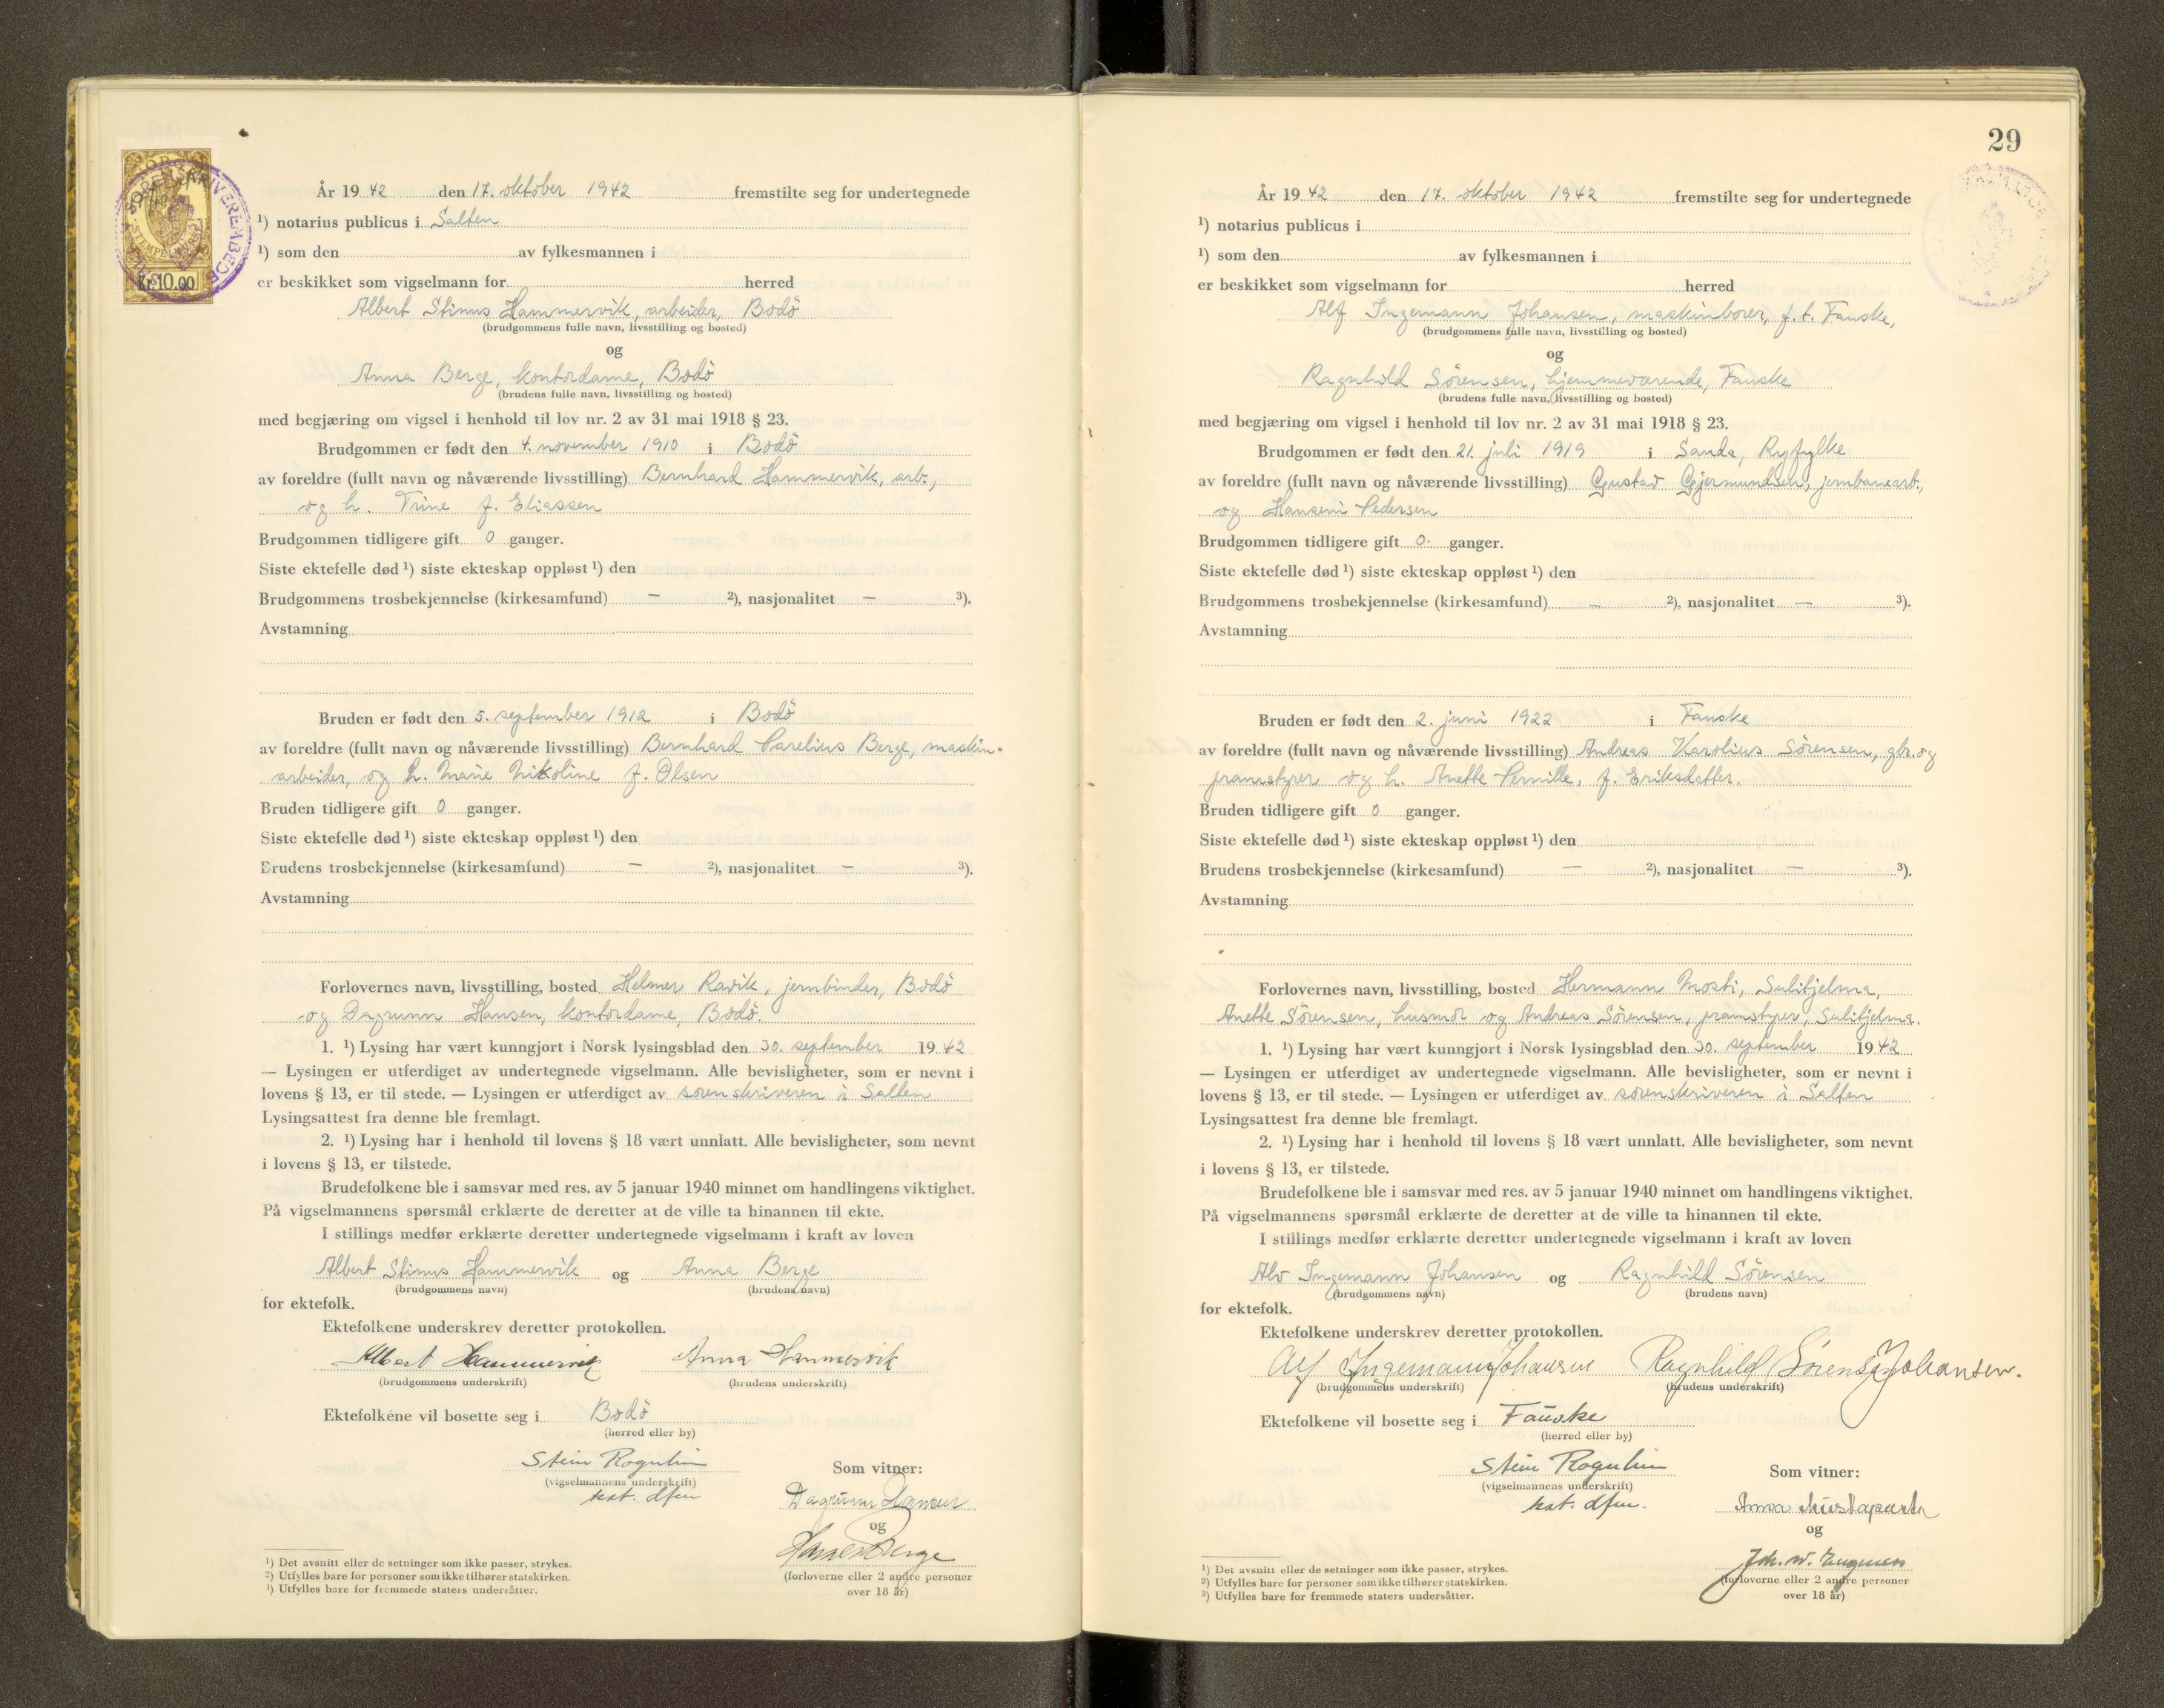 SORENSKRIVEREMBEDE
STEMPEL
Kr. 10.00
År 19 42 den 17. oktober 1942 fremstilte seg for undertegnede
¹) notarius publicus i Salten
¹) som den av fylkesmannen i
er beskikket som vigselmann for herred
Albert Stinus Hammervik, arbeider, Bodö
(brudgommens fulle navn, livsstilling og bosted)
og
Anna Berge, kontordame, Bodö
(brudens fulle navn, livsstilling og bosted)
med begjæring om vigsel i henhold til lov nr. 2 av 31 mai 1918 § 23.
Brudgommen er født den 4. november 1910 i Bodö
av foreldre (fullt navn og nåværende livsstilling) Bernhard Hammervik, arb.,
og h. Trine f. Eliassen
Brudgommen tidligere gift 0 ganger.
Siste ektefelle død ¹) siste ekteskap oppløst ¹) den
Brudgommens trosbekjennelse (kirkesamfund) — ²), nasjonalitet — ³).
Avstamning
Bruden er født den 5. september 1912 i Bodö
av foreldre (fullt navn og nåværende livsstilling) Bernhard Parelius Berge, maskin-
arbeider, og h. Marie Nikoline f. Olsen
Bruden tidligere gift 0 ganger.
Siste ektefelle død ¹) siste ekteskap oppløst ¹) den
Brudens trosbekjennelse (kirkesamfund) — ²), nasjonalitet — ³).
Avstamning
Forlovernes navn, livsstilling, bosted Helmer Ravik, jernbinder, Bodö
og Dagrunn Hansen, kontordame, Bodö.
1. ¹) Lysing har vært kunngjort i Norsk lysingsblad den 30. september 19 42
— Lysingen er utferdiget av undertegnede vigselmann. Alle bevisligheter, som er nevnt i
lovens § 13, er til stede. — Lysingen er utferdiget av sorenskriveren i Salten
Lysingsattest fra denne ble fremlagt.
2. ¹) Lysing har i henhold til lovens § 18 vært unnlatt. Alle bevisligheter, som nevnt
i lovens § 13, er tilstede.
Brudefolkene ble i samsvar med res. av 5 januar 1940 minnet om handlingens viktighet.
På vigselmannens spørsmål erklærte de deretter at de ville ta hinannen til ekte.
I stillings medfør erklærte deretter undertegnede vigselmann i kraft av loven
Albert Stinus Hammervik og Anna Berge
(brudgommens navn) (brudens navn)
for ektefolk.
Ektefolkene underskrev deretter protokollen.
Albert Hammervik Anna Hammervik
(brudgommens underskrift) (brudens underskrift)
Ektefolkene vil bosette seg i Bodö
(herred eller by)
Stein Rognlien Som vitner:
(vigselmannens underskrift)
kst. dfm Dagrunn Hansen
og
Berge
(forloverne eller 2 andre personer
over 18 år)
¹) Det avsnitt eller de setninger som ikke passer, strykes.
²) Utfylles bare for personer som ikke tilhører statskirken.
³) Utfylles bare for fremmede staters undersåtter.
29
År 19 42 den 17. oktober 1942 fremstilte seg for undertegnede
¹) notarius publicus i
¹) som den av fylkesmannen i
er beskikket som vigselmann for herred
Alf Ingemann Johansen, maskinborer, f.t. Fauske,
(brudgommens fulle navn, livsstilling og bosted)
og
Ragnhild Sörensen, hjemmeværende, Fauske
(brudens fulle navn, livsstilling og bosted)
med begjæring om vigsel i henhold til lov nr. 2 av 31 mai 1918 § 23.
Brudgommen er født den 21. juli 1919 i Sanda, Ryfylke
av foreldre (fullt navn og nåværende livsstilling) Gustav Gjermundsen, jernbanearb.,
og Hansemi Pedersen
Brudgommen tidligere gift 0. ganger.
Siste ektefelle død ¹) siste ekteskap oppløst ¹) den
Brudgommens trosbekjennelse (kirkesamfund) — ²), nasjonalitet — ³).
Avstamning
Bruden er født den 2. juni 1922 i Fauske
av foreldre (fullt navn og nåværende livsstilling) Andreas Karolius Sörensen, gbr. og
pramstyrer og h. Anette Pernille, f. Eriksdatter.
Bruden tidligere gift 0 ganger.
Siste ektefelle død ¹) siste ekteskap oppløst ¹) den
Brudens trosbekjennelse (kirkesamfund) — ²), nasjonalitet — ³).
Avstamning
Forlovernes navn, livsstilling, bosted Hermann Mosti, Sulitjelma,
Anette Sörensen, husmor og Andreas Sörensen, pramstyrer, Sulitjelma.
1. ¹) Lysing har vært kunngjort i Norsk lysingsblad den 30. september 19 42
— Lysingen er utferdiget av undertegnede vigselmann. Alle bevisligheter, som er nevnt i
lovens § 13, er til stede. — Lysingen er utferdiget av sorenskriveren i Salten
Lysingsattest fra denne ble fremlagt.
2. ¹) Lysing har i henhold til lovens § 18 vært unnlatt. Alle bevisligheter, som nevnt
i lovens § 13, er tilstede.
Brudefolkene ble i samsvar med res. av 5 januar 1940 minnet om handlingens viktighet.
På vigselmannens spørsmål erklærte de deretter at de ville ta hinannen til ekte.
I stillings medfør erklærte deretter undertegnede vigselmann i kraft av loven
Alv Ingemann Johansen og Ragnhild Sörensen
(brudgommens navn) (brudens navn)
for ektefolk.
Ektefolkene underskrev deretter protokollen.
Alf Ingemann Johansen Ragnhild Sörensen Johansen.
(brudgommens underskrift) (brudens underskrift)
Ektefolkene vil bosette seg i Fauske
(herred eller by)
Stein Rognlien Som vitner:
(vigselmannens underskrift)
kst. dfm. Anna Mustaparta
og
Joh. W.
(forloverne eller 2 andre personer
over 18 år)
¹) Det avsnitt eller de setninger som ikke passer, strykes.
²) Utfylles bare for personer som ikke tilhører statskirken.
³) Utfylles bare for fremmede staters undersåtter.